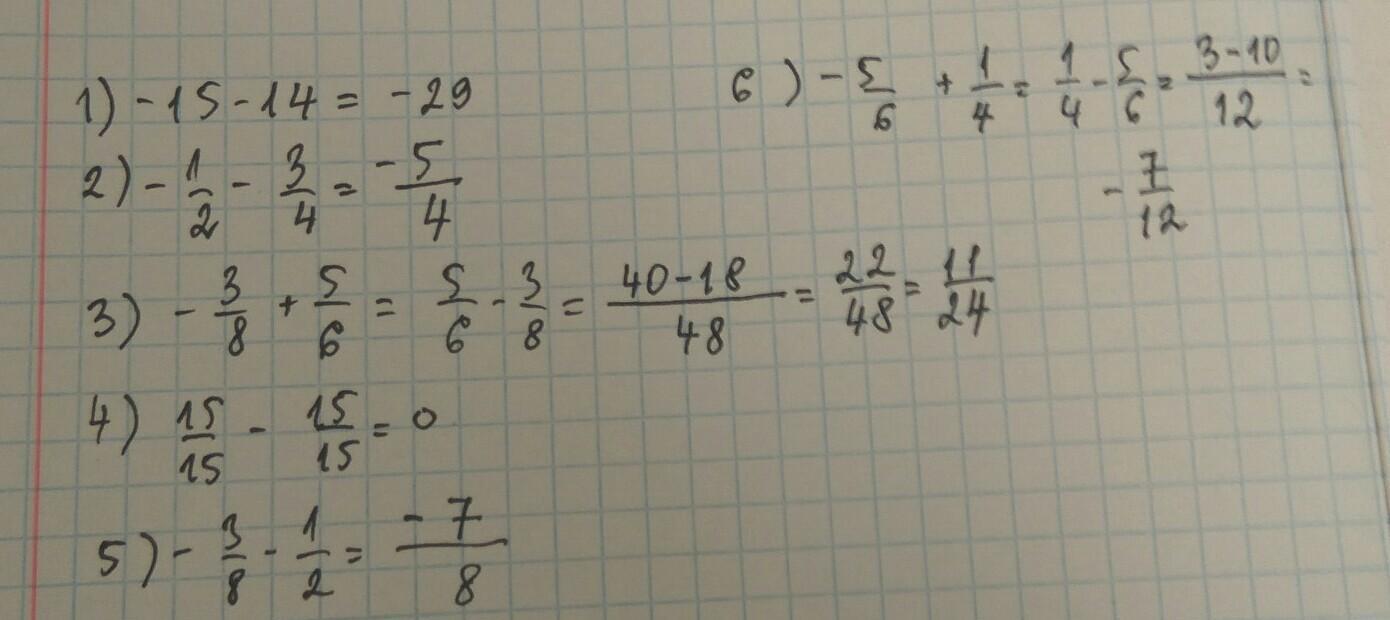 1) -15-14 = -29
2) - 1/2 - 3/4 = -5/4
3) - 3/8 + 5/6 = 5/6 - 3/8 = 40-18/48 = 22/48 = 11/24
4) 15/15 - 15/15 = 0
5) - 3/8 - 1/2 = -7/8
6) - 5/6 + 1/4 = 1/4 - 5/6 = 3-10/12 =
- 7/12